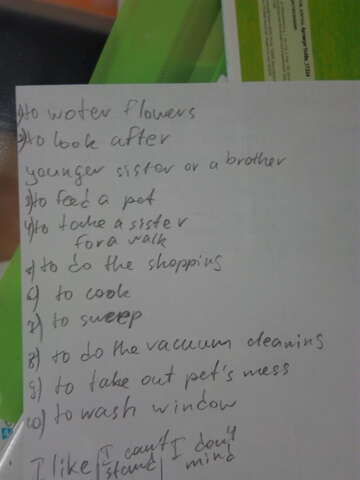 1) to woter flowers
2) to look after
younger sister or a brother
3) to feed a pet
4) to take a sister
for a walk
5) to do the shopping
6) to cook
7) to sweep
8) to do the vacuum cleaning
9) to take out pet's mess
10) to wash window
I like | I can't stand | I don't mind